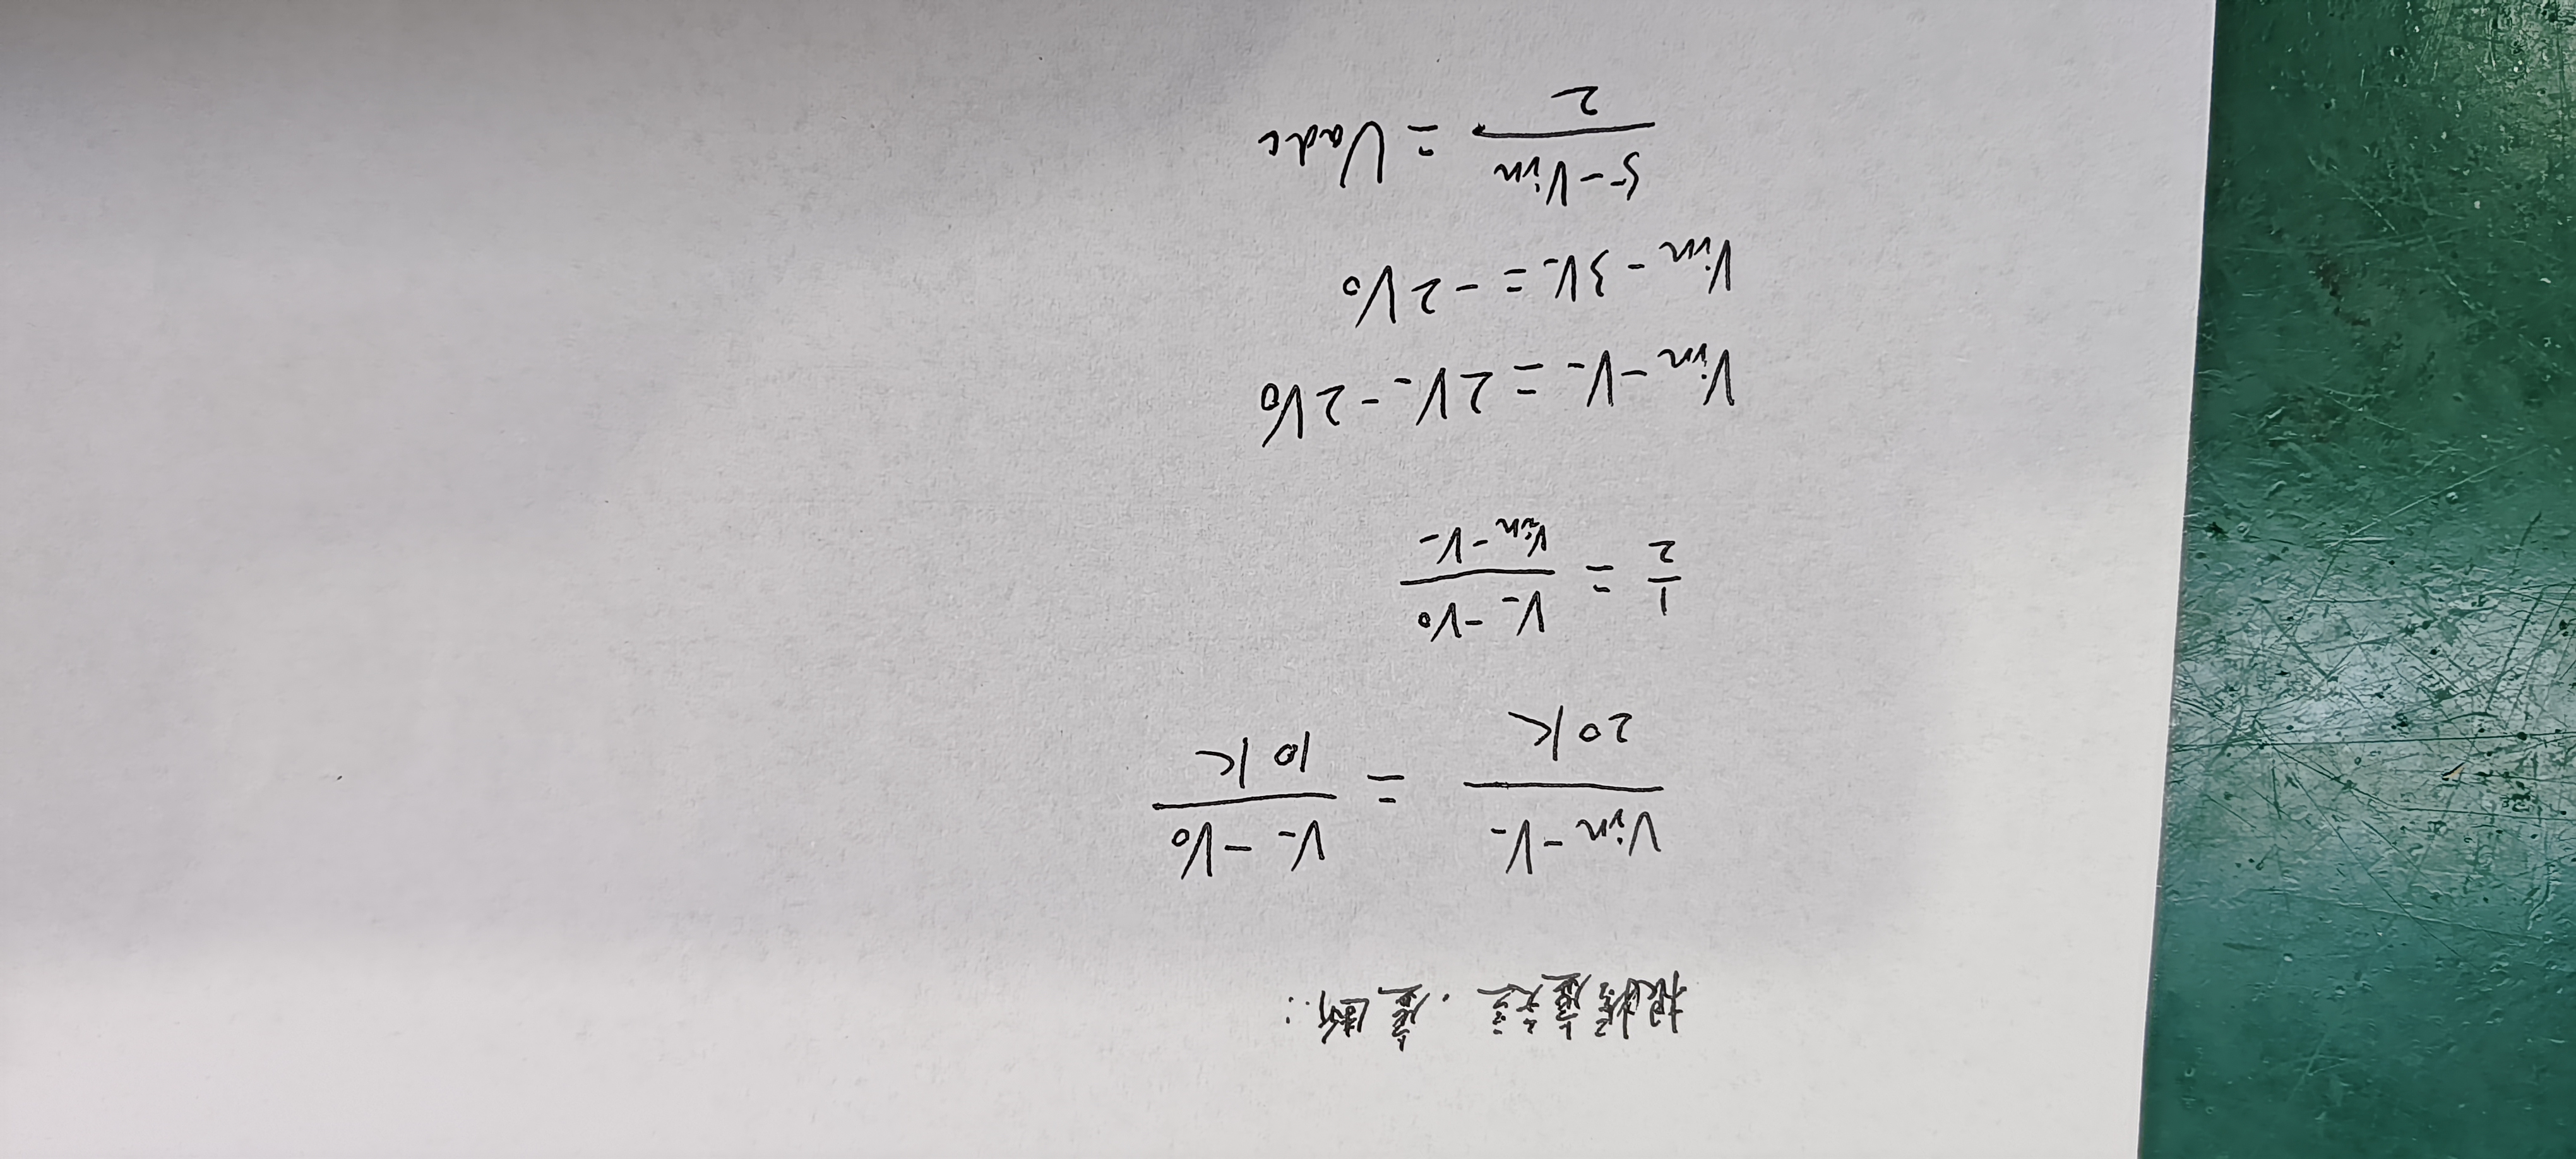 根据虚短，虚断：
(Vin - V-)/20K = (V- - Vo)/10K
1/2 = (V- - Vo)/(Vin - V-)
Vin - V- = 2V- - 2Vo
Vin - 3V- = -2Vo
(5 - Vin)/2 = Vadc